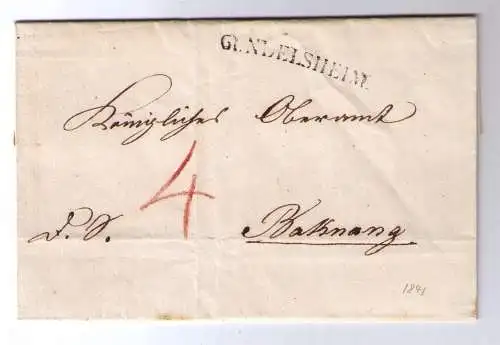 GUNDELSHEIM
Königliches Oberamt
4
D. S. Baknang
1841